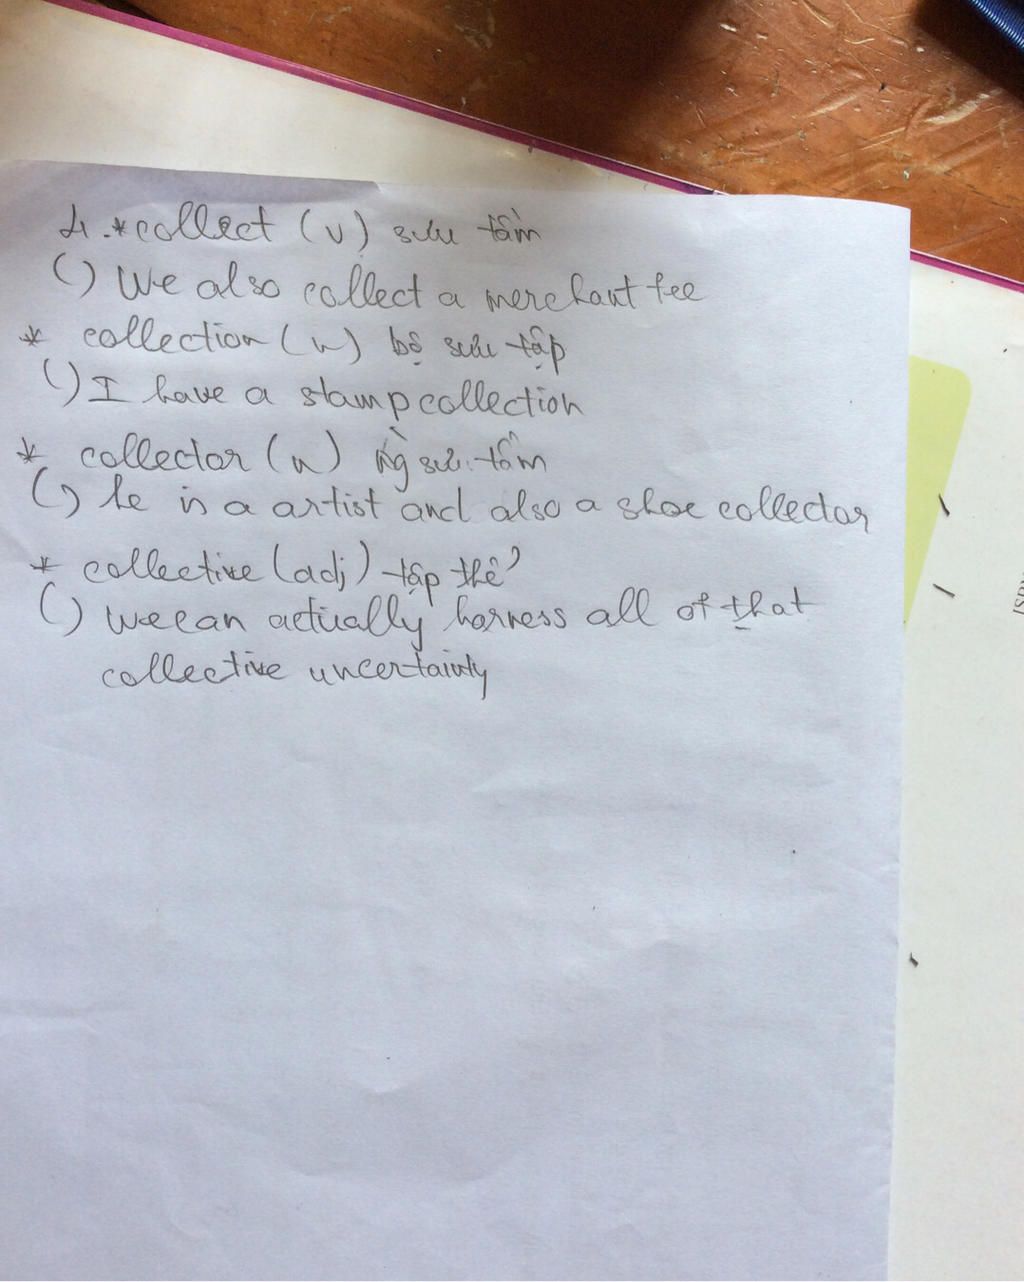 4. * collect (v) sưu tầm
( ) We also collect a merchant fee
* collection (n) bộ sưu tập
( ) I have a stamp collection
* collector (n) ng̀ sưu tầm
( ) he is a artist and also a shoe collector
* collective (adj) tập thể
( ) we can actually harness all of that
collective uncertainty